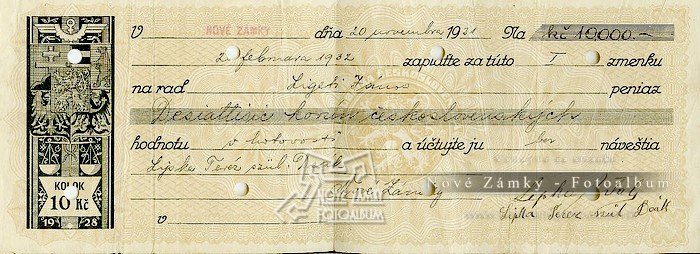 V NOVÉ ZÁMKY dňa 20 novembra 1931 Na Kč 10000.-
februara 1932 zaplaťte za túto I zmenku
na rad Ligeti peniaz
Desiattisíc korún československých
hodnotu v hotovosti a účtujte ju bez návestia
Lipka Teréz szül. Deák
KOLOK
10 Kč
1928
Nové Zámky - Fotoalbum
NOVÉ ZÁMKY
FOTOALBUM
Lipka Teréz szül Deák
v